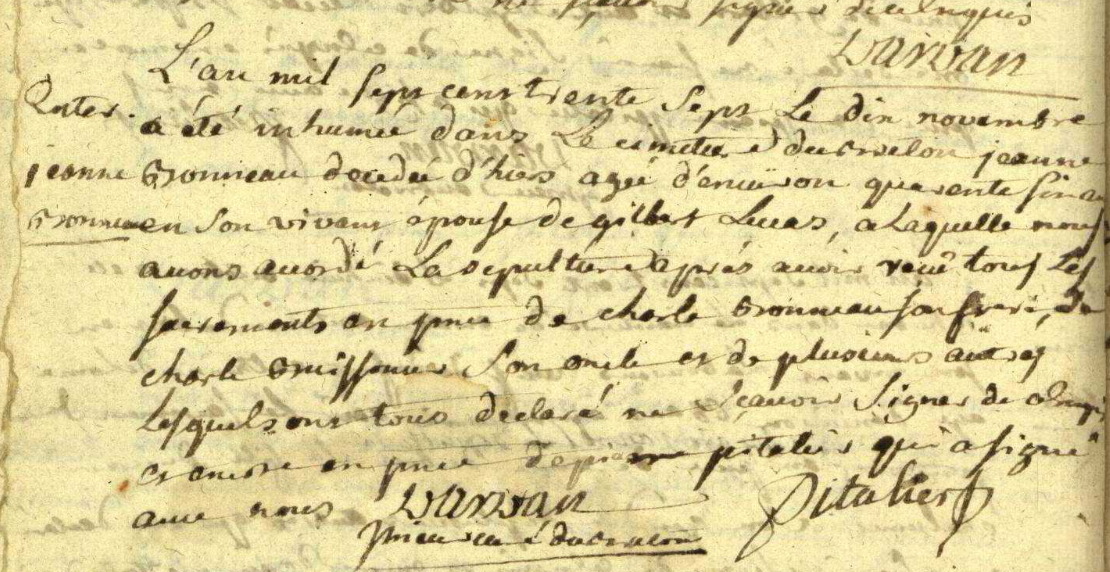 ne sçavoir signer de ce enquis
Darvan
L'an mil sept cens trente sept Le dix novembre
Enter. a été inhumée dans Le cimetiere du jeanne
jeanne Bonneau decedée d'hier agée d'environ quarente sin
Bonneau en son vivant épouse de gilbert Lucas, a Laquelle nous
avons accordé La sepulture après avoir reçû tous Les
sacrements en pnce de charle Bonneau son frere, de
charle son oncle et de plusieurs autres
Lesquels ont tous declaré ne sçavoir signer de ce
et encore en pnce de pierre pitalier qui a signé
avec nous Darvan Pitalier
prieur curé